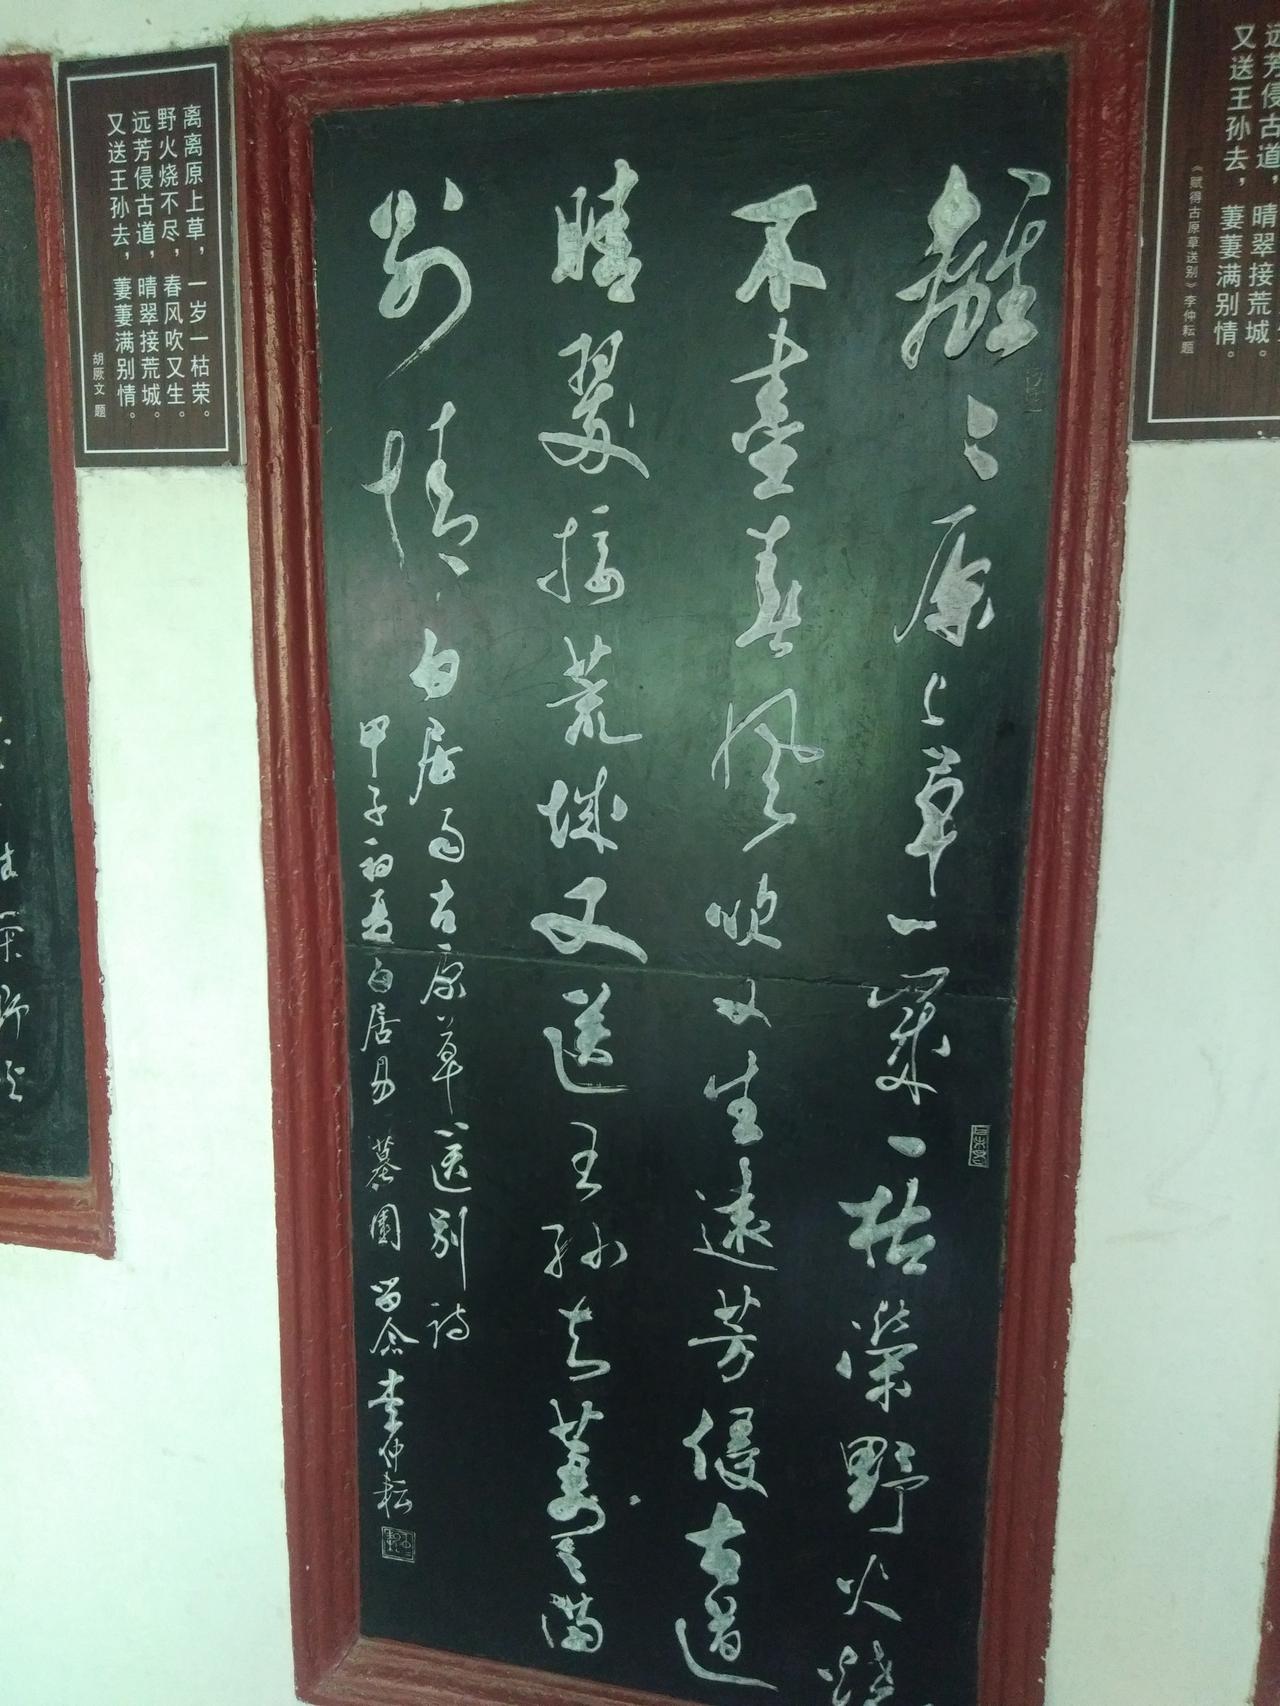 又送王孙去，萋萋满别情。
《赋得古原草送别》李仲耘 题
離〻原上草一歲一枯榮野火燒
不盡春風吹又生遠芳侵古道
晴翠接荒城又送王孙去萋〻満
别情
白居易古原草送别诗
甲子初夏白居易墓園留念李仲耘
离离原上草，一岁一枯荣。
野火烧不尽，春风吹又生。
远芳侵古道，晴翠接荒城。
又送王孙去，萋萋满别情。
胡厥文 题